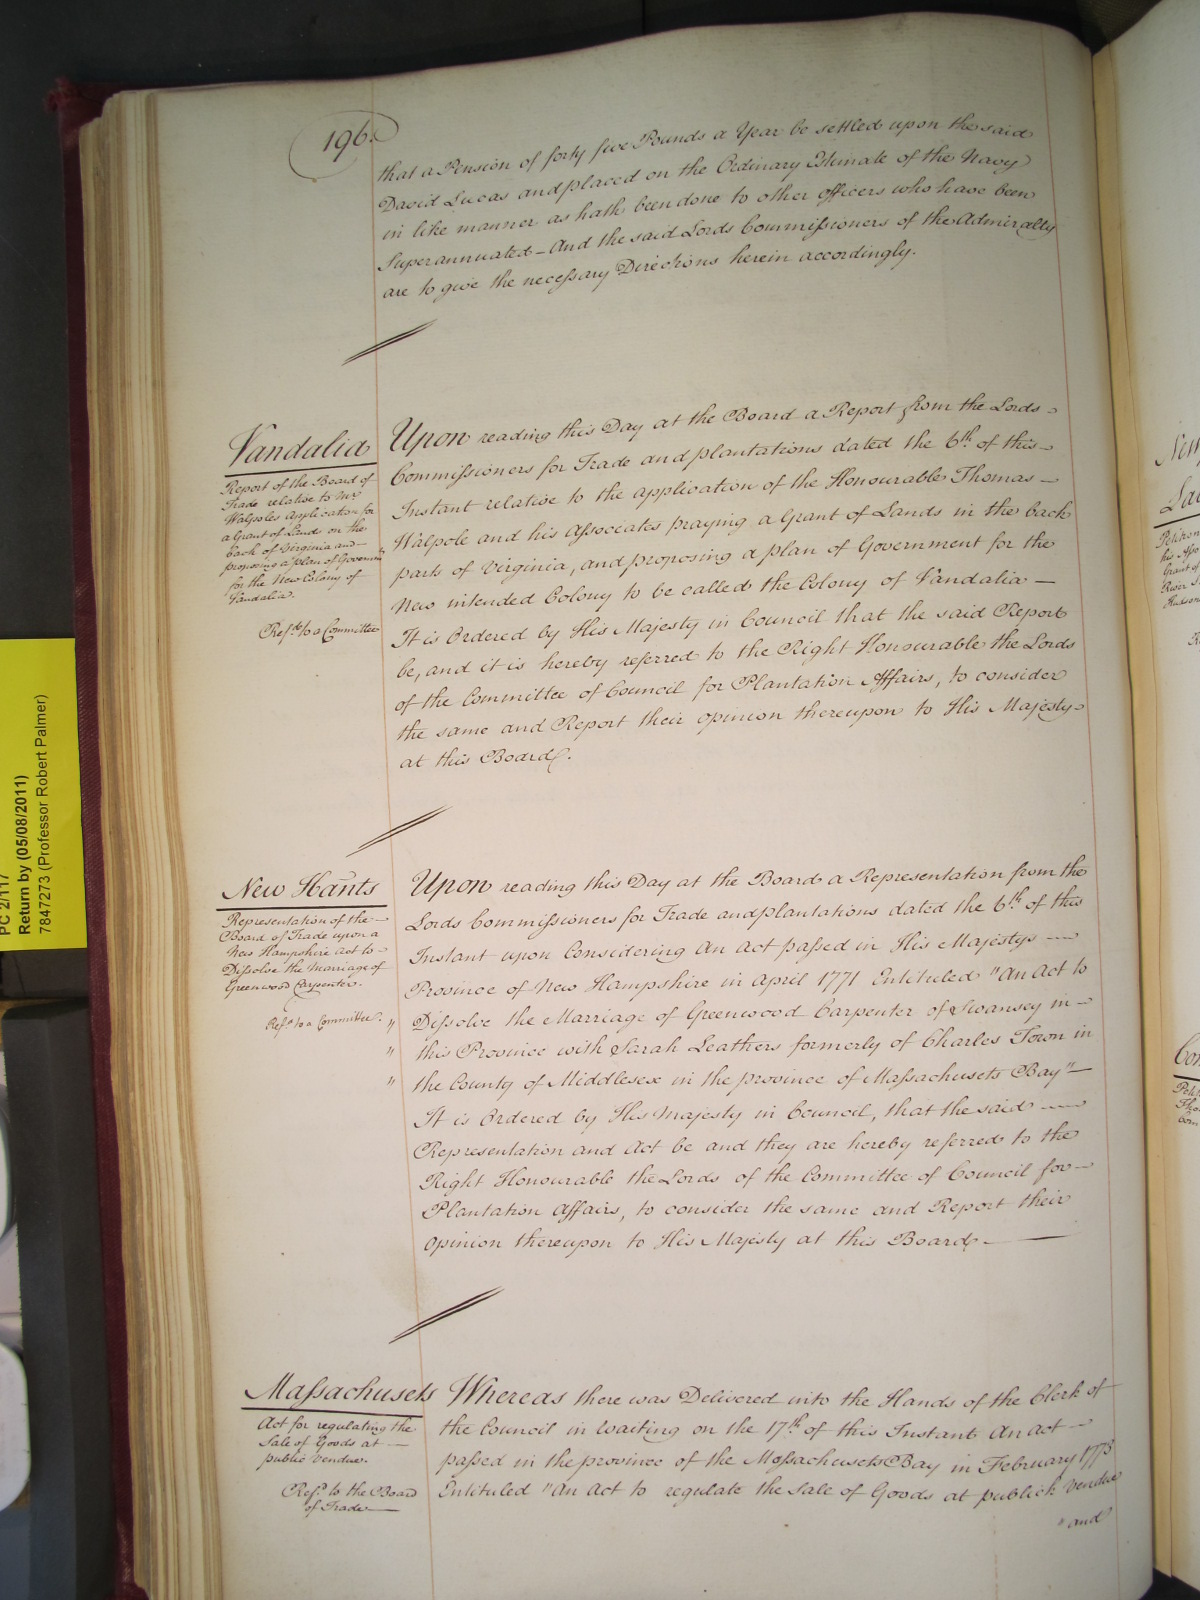 196.
that a Pension of forty five Pounds a Year be settled upon the said
David Lucas and placed on the Ordinary Estimate of the Navy
in like manner as hath been done to other officers who have been
Superannuated - And the said Lords Commissioners of the Admiralty
are to give the necessary Directions herein accordingly.
Vandalia
Report of the Board of
Trade relative to Mr.
Walpoles Application for
a Grant of Land on the
back of Virginia and
proposing a plan of Governmt
for the New Colony of
Vandalia.
Refd. to a Committee
Upon reading this Day at the Board a Report from the Lords
Commissioners for Trade and plantations dated the 6th of this
Instant relative to the application of the Honourable Thomas
Walpole and his Associates praying a Grant of Lands in the back
parts of Virginia, and proposing a plan of Government for the
New intended Colony to be called the Colony of Vandalia —
It is Ordered by His Majesty in Council that the said Report
be, and it is hereby referred to the Right Honourable the Lords
of the Committee of Council for Plantation Affairs, to consider
the same and Report their opinion thereupon to His Majesty
at this Board.
New Hants
Representation of the
Board of Trade upon a
New Hampshire Act to
Dissolve the Marriage of
Greenwood Carpenter.
Refd. to a Committee.
Upon reading this Day at the Board a Representation from the
Lords Commissioners for Trade and plantations dated the 6th of this
Instant upon Considering An Act passed in His Majestys
Province of New Hampshire in April 1771 Entituled "An Act to
" Dissolve the Marriage of Greenwood Carpenter of Swansey in
" this Province with Sarah Leathers formerly of Charles Town in
" the County of Middlesex in the province of Massachusets Bay" —
It is Ordered by His Majesty in Council, that the said
Representation and Act be and they are hereby referred to the
Right Honourable the Lords of the Committee of Council for
Plantation Affairs, to consider the same and Report their
opinion thereupon to His Majesty at this Board. —
Massachusets
Act for regulating the
Sale of Goods at
public Vendue.
Refd. to the Board
of Trade
Whereas there was Delivered into the Hands of the Clerk of
the Council in waiting on the 17th of this Instant An Act
passed in the province of the Massachusets Bay in February 1773
Entituled "An Act to regulate the Sale of Goods at publick Vendue
" and
PC 2/117
Return by (05/08/2011)
7847273 (Professor Robert Palmer)
New
Petition
his Asso
Grant of
River S
Hudsons